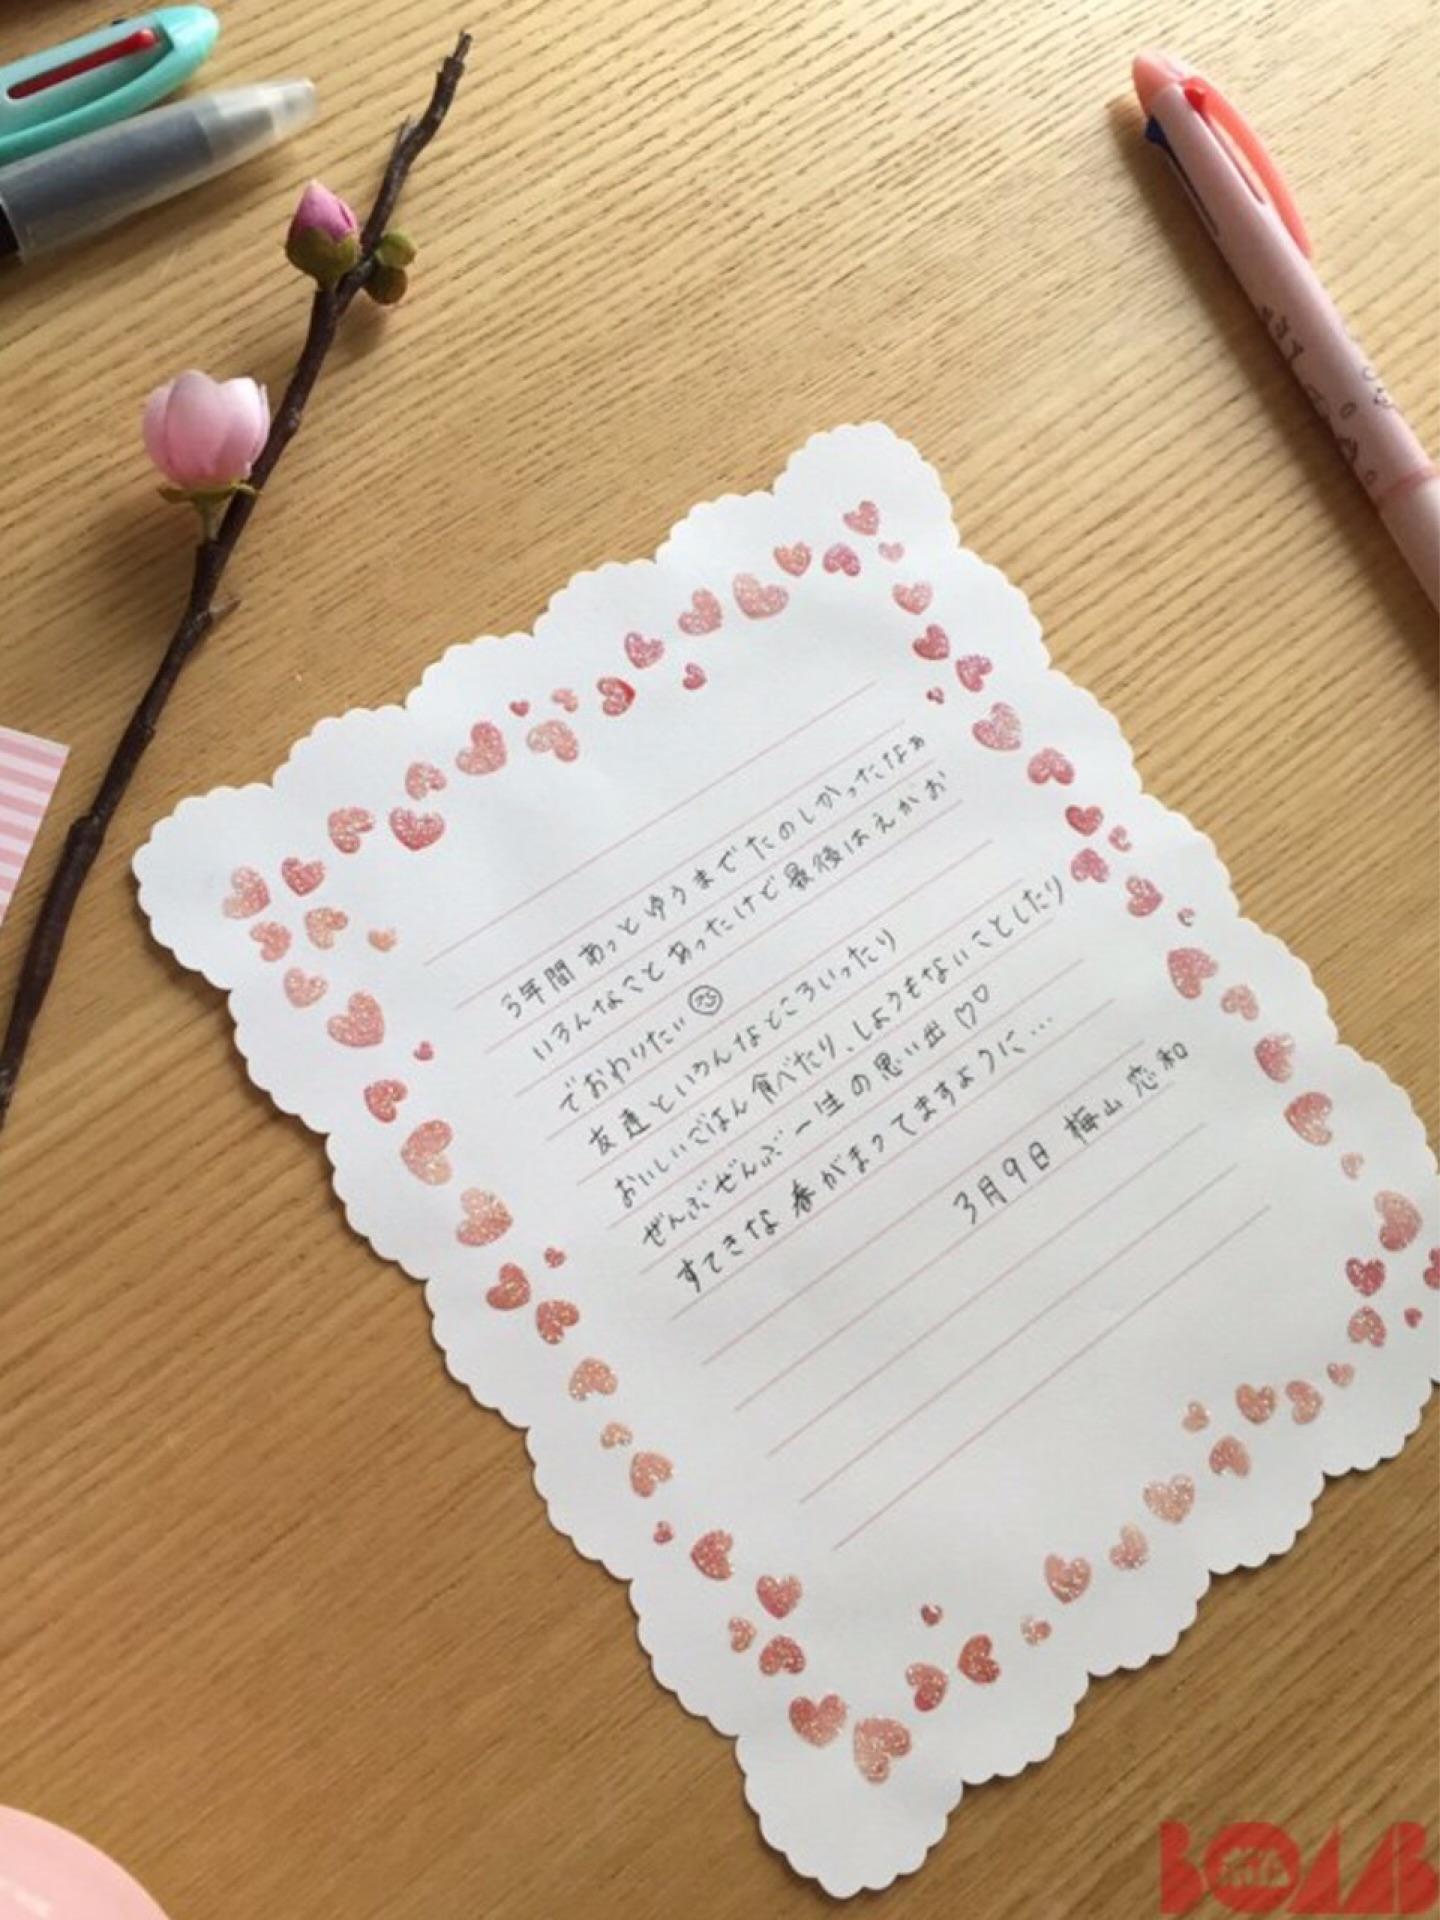 3年間あっとゆうまでたのしかったなぁ
いろんなことあったけど最後はえがお
でおわりたい
友達といろんなところいったり
おいしいごはん食べたり、しょうもないことしたり
ぜんぶぜんぶ一生の思い出♡♡
すてきな春がまってますように…
3月9日 梅山恋和
BOMB